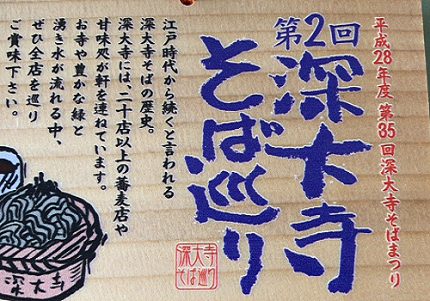 平成28年度 第35回深大寺そばまつり
第2回
深大寺
そば巡り
江戸時代から続くと言われる
深大寺そばの歴史。
深大寺には、二十店以上の蕎麦店や
甘味処が軒を連ねています。
お寺や豊かな緑と
湧き水が流れる中、
ぜひ全店を巡り
ご賞味下さい。
深大寺
そば巡り
深大寺